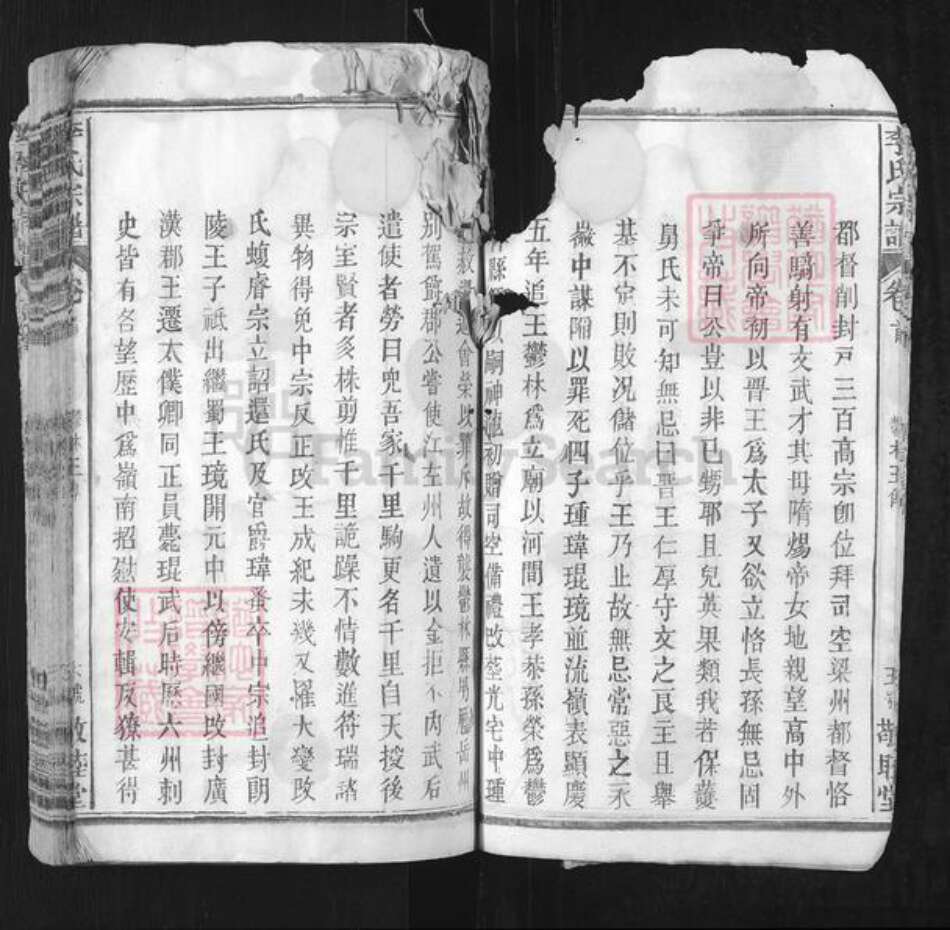 李氏宗譜
都督削封戸三百高宗卽位拜司空梁州都督恪
善騎射有文武才其母隋煬帝女地親望高中外
所向帝初以晋王爲太子又欲立恪長孫無忌固
爭帝曰公豈以非己甥耶且兒英果類我若保護
舅氏未可知無忌曰晋王仁厚守文之良主且舉
基不定則敗况儲位乎王乃止故無忌常惡之永
徽中謀隔以罪死四子瑾瑋琨璄並流嶺表顯慶
五年追王鬱林爲立廟以河間王孝恭孫榮爲鬱
縣嗣神龍初贈司空備禮改葬光宅中瑾
榮以罪斥故得襲鬱林縣
別駕鄫郡公嘗使江左州人遺以金拒不內武后
遣使者勞曰兜吾家千里駒更名千里自天授後
宗室賢者多株剪惟千里詭躁不情數進符瑞諸
異物得免中宗反正改王成紀未幾又罹大變改
氏蝮睿宗立詔還氏及官爵瑋蚤卒中宗追封朗
陵王子祗出繼蜀王璄開元中以傍繼國改封廣
漢郡王遷太僕卿同正員薨琨武后時歷六州刺
史皆有各望歷中爲嶺南招慰使安輯反獠甚得
李氏宗譜
卷
敬睦堂
FamilySearch